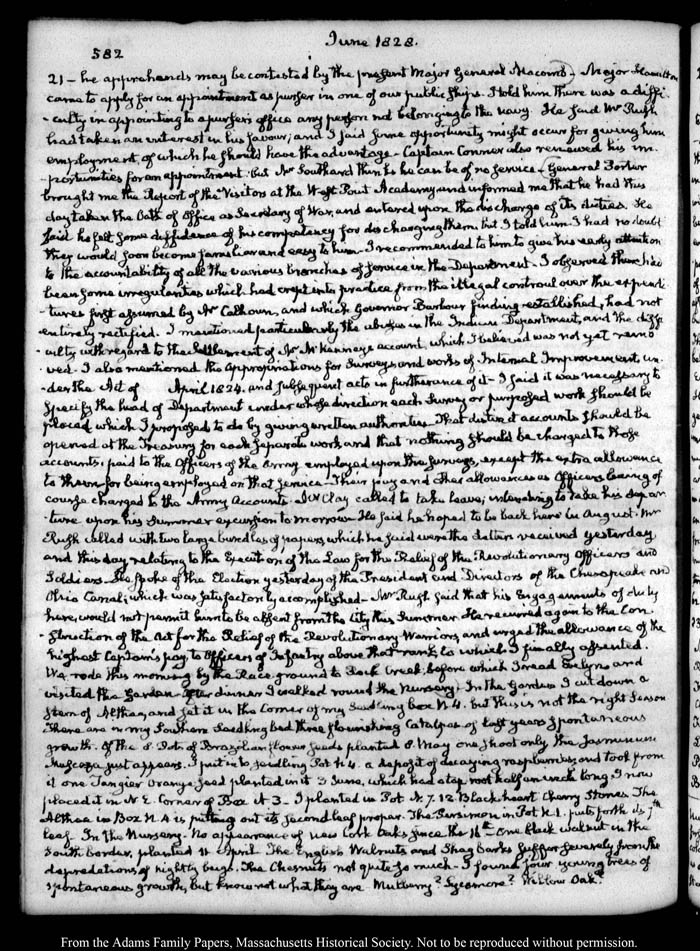 582
June 1828.
21 — he apprehends may be contested by the present Major General Macomb — Major Hamilton
came to apply for an appointment as purser in one of our public Ships. I told him there was a diffi-
-culty in appointing to a purser's office any person not belonging to the navy. He said Mr Rush
had taken an interest in his favour; and I said some opportunity might occur for giving him
employment, of which he should have the advantage — Captain Conner also renewed his im-
-portunities for an appointment. But Mr Southard thinks he can be of no service — General Porter
brought me the Report of the Visitors at the West Point Academy and informed me that he had this
day taken the Oath of Office as Secretary of War, and entered upon the discharge of its duties. He
said he felt some diffidence of his competency for discharging them, but I told him I had no doubt
they would soon become familiar and easy to him — I recommended to him to give his early attention
to the accountability of all the various branches of service in the Department — I observed there had
been some irregularities which had crept into practice from the illegal controul over the expendi-
-tures first assumed by Mr Calhoun, and which Governor Barbour finding established, had not
entirely rectified. I mentioned particularly the abuses in the Indian Department, and the diffi-
-culty with regard to the settlement of Mr McKenney's account, which I believed was not yet remo-
-ved. I also mentioned the appropriations for Surveys and works of Internal Improvement, un-
-der the Act of April 1824. and subsequent acts in furtherance of it — I said it was necessary to
specify the head of Department under whose direction each Survey or purposed work should be
placed, which I proposed to do by giving written authorities. That distinct accounts should be
opened at the Treasury for each separate work, and that nothing should be charged to those
accounts, paid to the Officers of the Army employed upon the surveys, except the extra allowance
to them for being employed on that service — Their pay and other allowances as Officers being of
course charged to the Army Accounts. Mr Clay called to take leave; intending to take his depar-
-ture upon his Summer excursion tomorrow. He said he hoped to be back here in August. Mr
Rush called with two large bundles of papers, which he said were the letters received yesterday
and this day relating to the Execution of the Law for the Relief of the Revolutionary Officers and
Soldiers. He spoke of the Election yesterday of the President and Directors of the Chesapeake and
Ohio Canal; which was satisfactorily accomplished — Mr Rush said that his engagements of duty
here, would not permit him to be absent from the City this Summer. He recurred again to the Con-
-struction of the Act for the Relief of the Revolutionary Warriors, and urged the allowance of the
highest Captain's pay, to Officers of Infantry above that rank, to which I finally assented.
We rode this morning by the Race ground to Rock Creek, before which I read Evelyn and
visited the Garden. After dinner I walked round the Nursery. In the Garden I cut down a
Stem of Althea, and set it in the Corner of my Seedling box N. 4. but this is not the right season
There are in my Southern Seedling bed three flourishing Catalpas of last years spontaneous
growth. Of the 8 Pots of Brazilian flower seeds planted 8. May one shoot only the Jasminum
just appears. I put into seedling Pot N. 4 a deposit of decaying raspberries, and took from
it one Tangier Orange seed planted in it 3 June, which had a tap root half an inch long. I now
placed it in N. E. Corner of Box N. 3 — I planted in Pot N. 7. 12 Blackheart Cherry Stones. The
Althea in Box N. 4 is putting out its second leaf proper. The Persimon in Pot N. 1. puts forth its 7th
leaf. In the Nursery. No appearance of new Cork Oaks since the 16th One black walnut in the
South border, planted 11 April. The English Walnuts and Shag barks suffer severely from the
depredations of nightly bugs. The Chesnuts not quite so much — I found four young trees of
spontaneous growth, but know not what they are Mulberry? Sycamore? Willow Oak?
From the Adams Family Papers, Massachusetts Historical Society. Not to be reproduced without permission.